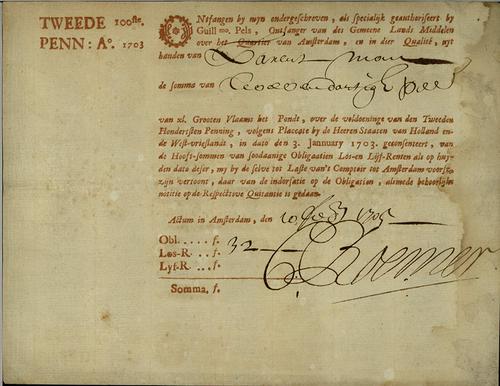 TWEEDE 100ste.
PENN: Ao. 1703
ONtfangen by myn ondergeschreven, als specialijk geauthoriseert by
Guill mo. Pels, Ontfanger van des Gemeene Lands Middelen
over het Quartier van Amsterdam, en in dier Qualité, uyt
handen van Barent
de somma van
van xl. Grooten Vlaams het Pondt, over de voldoeninge van den Tweeden
Hondertsten Penning, volgens Placcate by de Heeren Staaten van Holland en-
de West-vrieslandt, in dato den 3. Jannuary 1703. geconsenteert, van
de Hooft-sommen van soodaanige Obligatien Los-en Lijf-Renten als op huy-
den dato deser, my by de selve tot Laste van't Comptoir tot Amsterdam voorsz.
zijn vertoont, daar van de indorsatie op de Obligatien, alsmede behoorlijke
notitie op de Respective Quitantie is gedaan.
Actum in Amsterdam, den 10 1705
Obl. . . . . f. 32
Los-R. . . f.
Lyf-R. . . f.
Somma. f.
Roemer